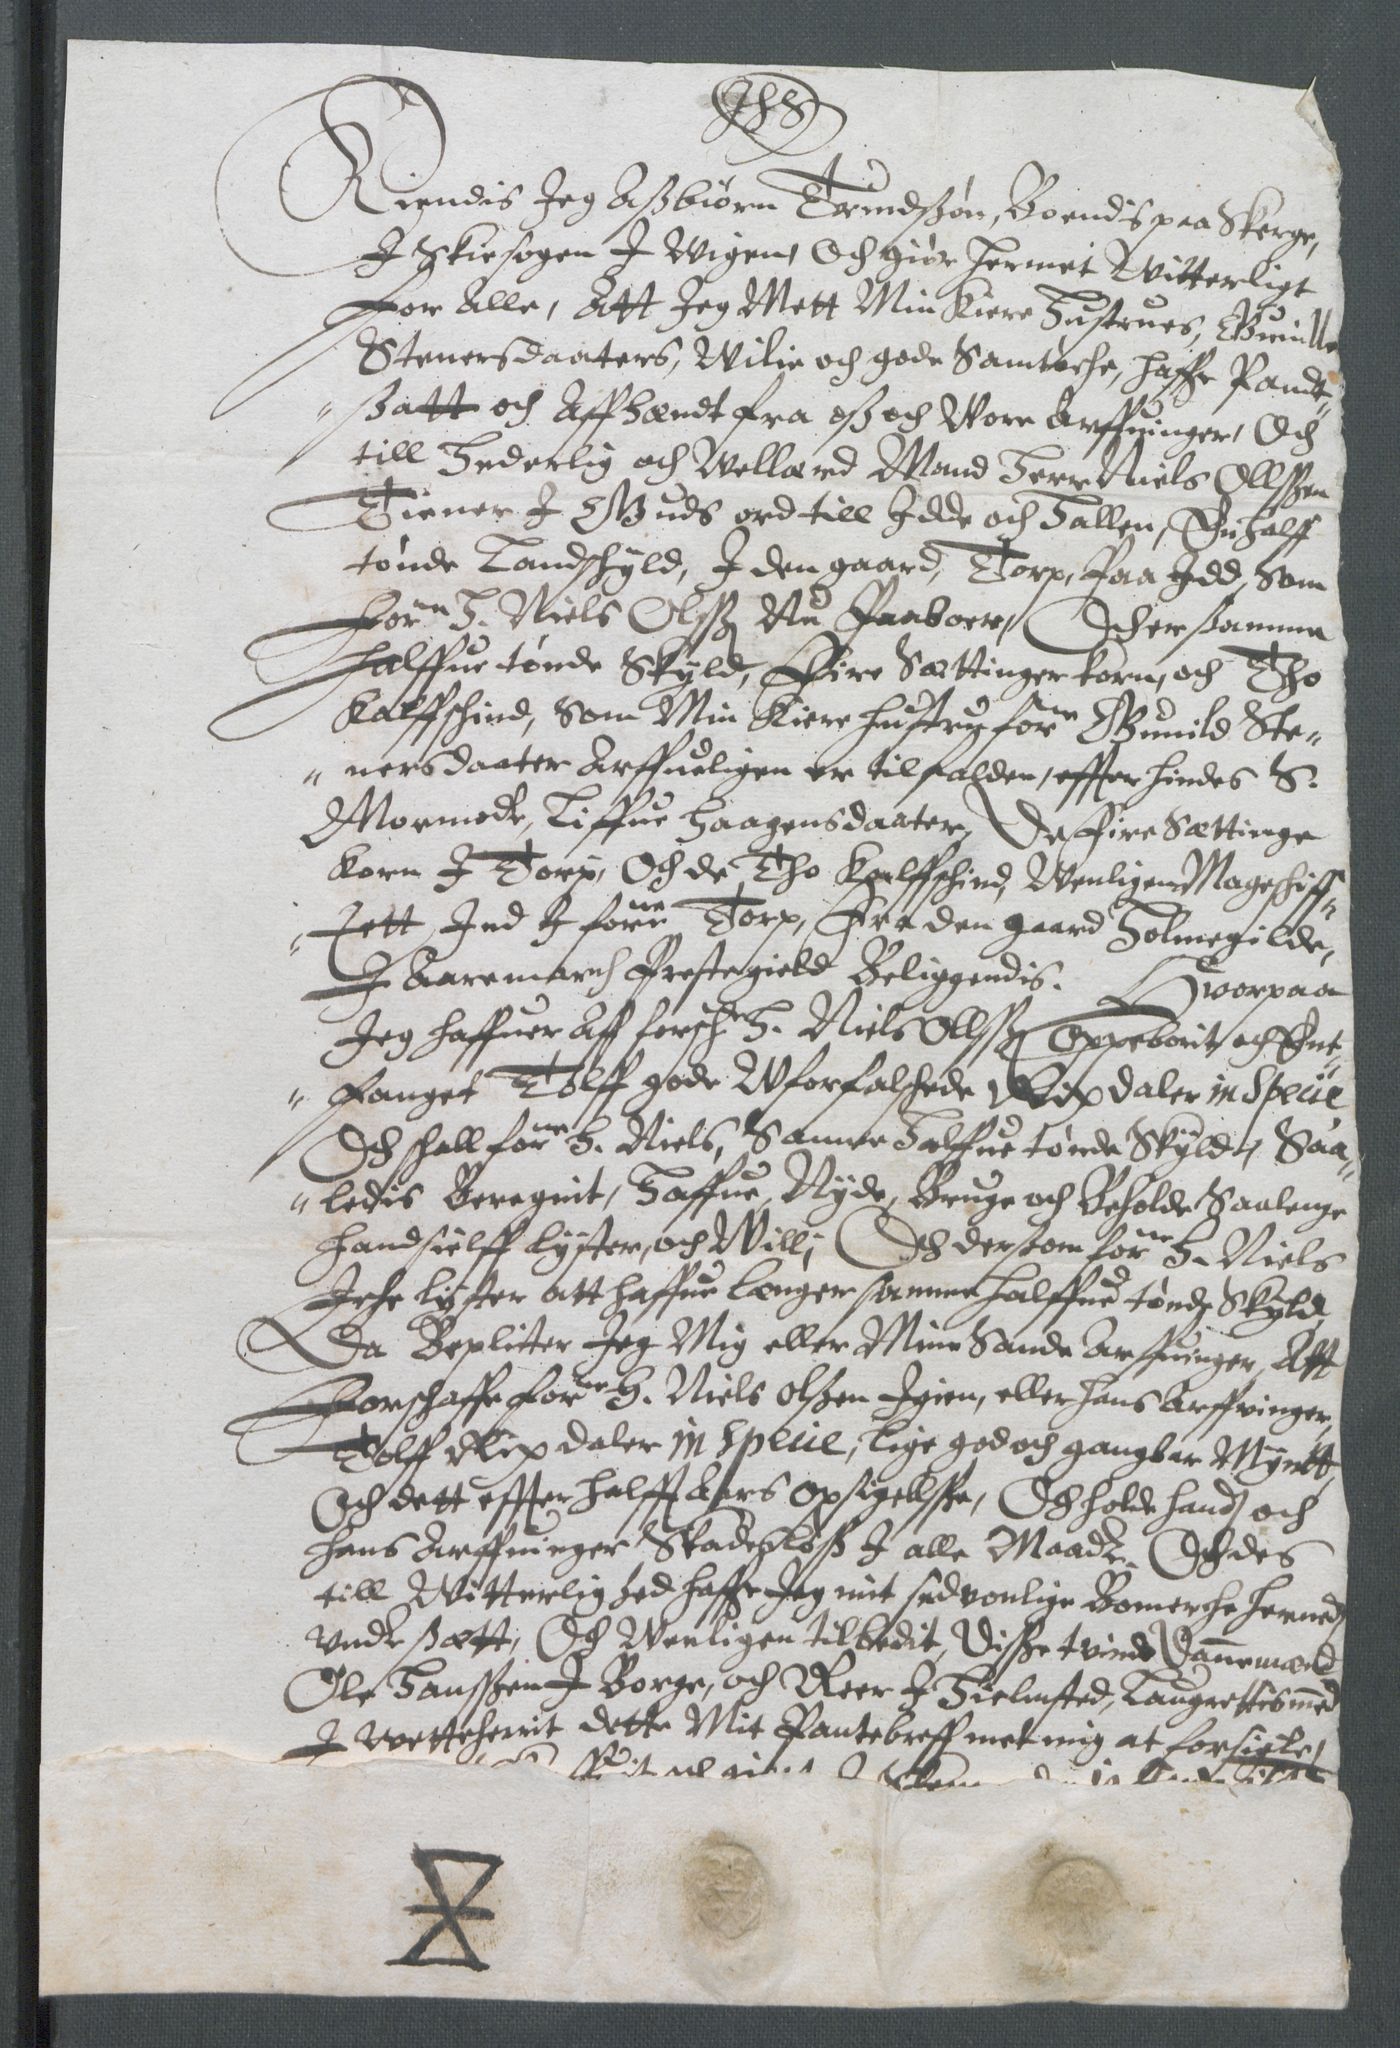 IHS
Kiendis Jeg Aßbiørn Trundßøn, Boendis paa Skerge,
J Skiesogen J Wigen, Och giør hermet Witterligt
for Alle, Att Jeg Mett Min Kiere Hustrues, Gunille
Stenersdaaters, Wilie och gode Samtøche, haffr Pandt-
"satt och Affhændt fra oß och Wore Arffuinger, Och
till Hederlig och Wellærd Mand Herr Niels Ollssen
Tiener J Guds ord till Jdde och Hallen, En halff
tønde Landschyld, J den gaard, Torp, Paa Jdd, som
for.ne H. Niels Olss. Nu Paaboer, Och er samme
halffue tønde Skyld, Fire Sættinger korn, och Tho
Kalffschind, Som Min Kiere hustru for.ne Gunild Ste-
"nersdaater Arffueligen er tilfalden, effter hindes S.
Mormoder, Liffue Haagensdaater, De Fire Sættinge
korn J Torp, Och de Tho Kalffschind, Wenligen Mageschiff-
"tett Ind J for.ne Torp, Fra den gaard Holmegilde,
J Aaremarch Prestegield Beliggendis. Huorpaa
Jeg haffuer Aff forsch.ne H. Niels Ollss. Oppeborit och Ent-
"fanget Tolff gode Wforfalschede Rix daler in Specie
Och schall for.ne H. Niels, Samme halffue tønde Skyld, Saa-
"ledis Beregnit, Haffue, Nyde, Bruge och Beholde Saalenge
hand sielff lyster, och Will, Och dersom for.ne H. Niels
Jche lyster att haffue længer samme halffue tønde Skyld,
Da Beplicter Jeg Mig eller Mine Sande Arffuinger, Att
forschaffe for.ne H. Niels olßen Jgien, eller hans Arffvinger,
Tolff Rix daler in Specie, lige god och gangbar Myntt,
Och dett effter halfft Aars opsigellße, Och holde hand och
hans Arffuinger Skadesløß J alle Maader. Och des
till Witterlighed haffr Jeg mit sedvonlige Bomerche herned
vnder sætt, Och Wenligen tilbedit, Disse tvinde Dannemænd
Ole Hanssen J Borge, och Reer J Hielmsted, Laugrettismend
J vetteherrit dette Mit Pantebreff met mig at forsigle,